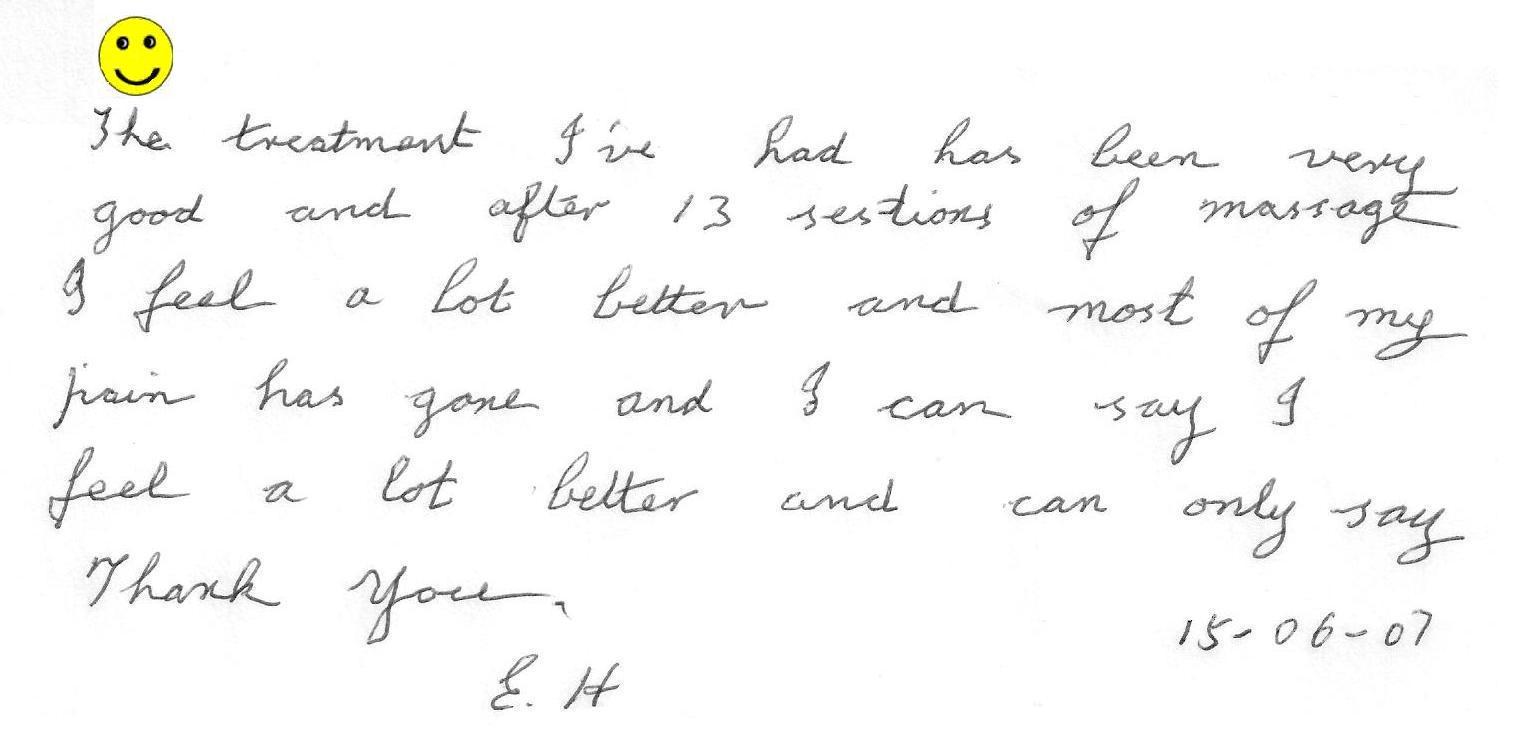 The treatment I've had has been very
good and after 13 sestions of massage
I feel a lot better and most of my
pain has gone and I can say I
feel a lot better and can only say
Thank You.
15-06-07
E. H